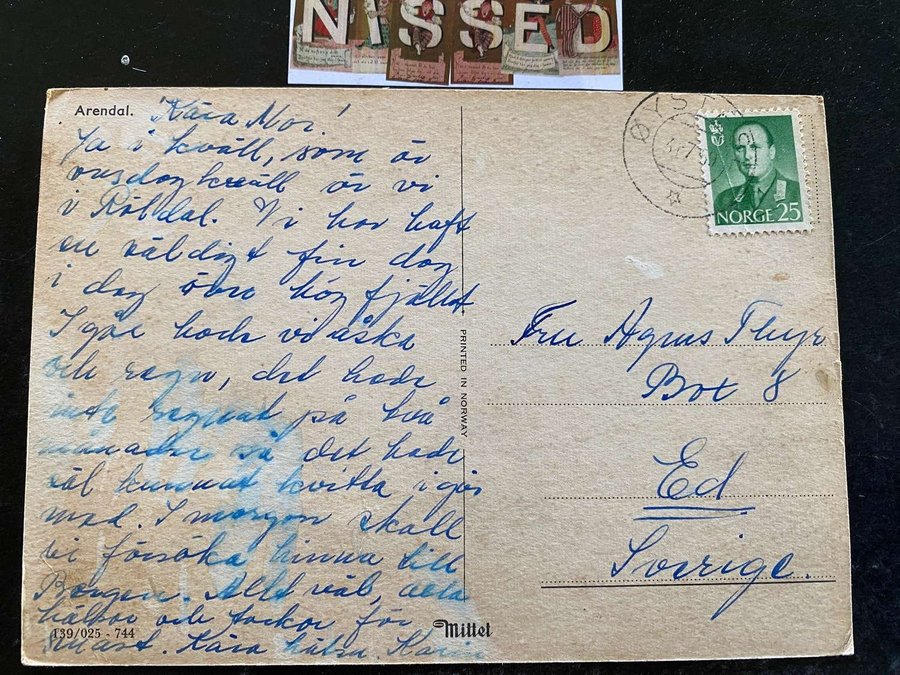 NISSED
Arendal.
Kära Moi!
Ja i kväll, som är
onsdag kväll är vi
i Röldal. Vi har haft
en väldigt fin dag
i dag över hög fjället
I går hade vi åska
och regn, det hade
inte regnat på två
månader så det hade
väl kunnat kvitta i går
med. I morgon skall
vi försöka hinna till
Bergen. Allt väl, alla
hälsar och tackar för
senast. Kära hälsn. Karin
139/025 - 744
PRINTED IN NORWAY
Mittet
NORGE 25
Fru Agnes Thyr
Box 8
Ed
Sverige.